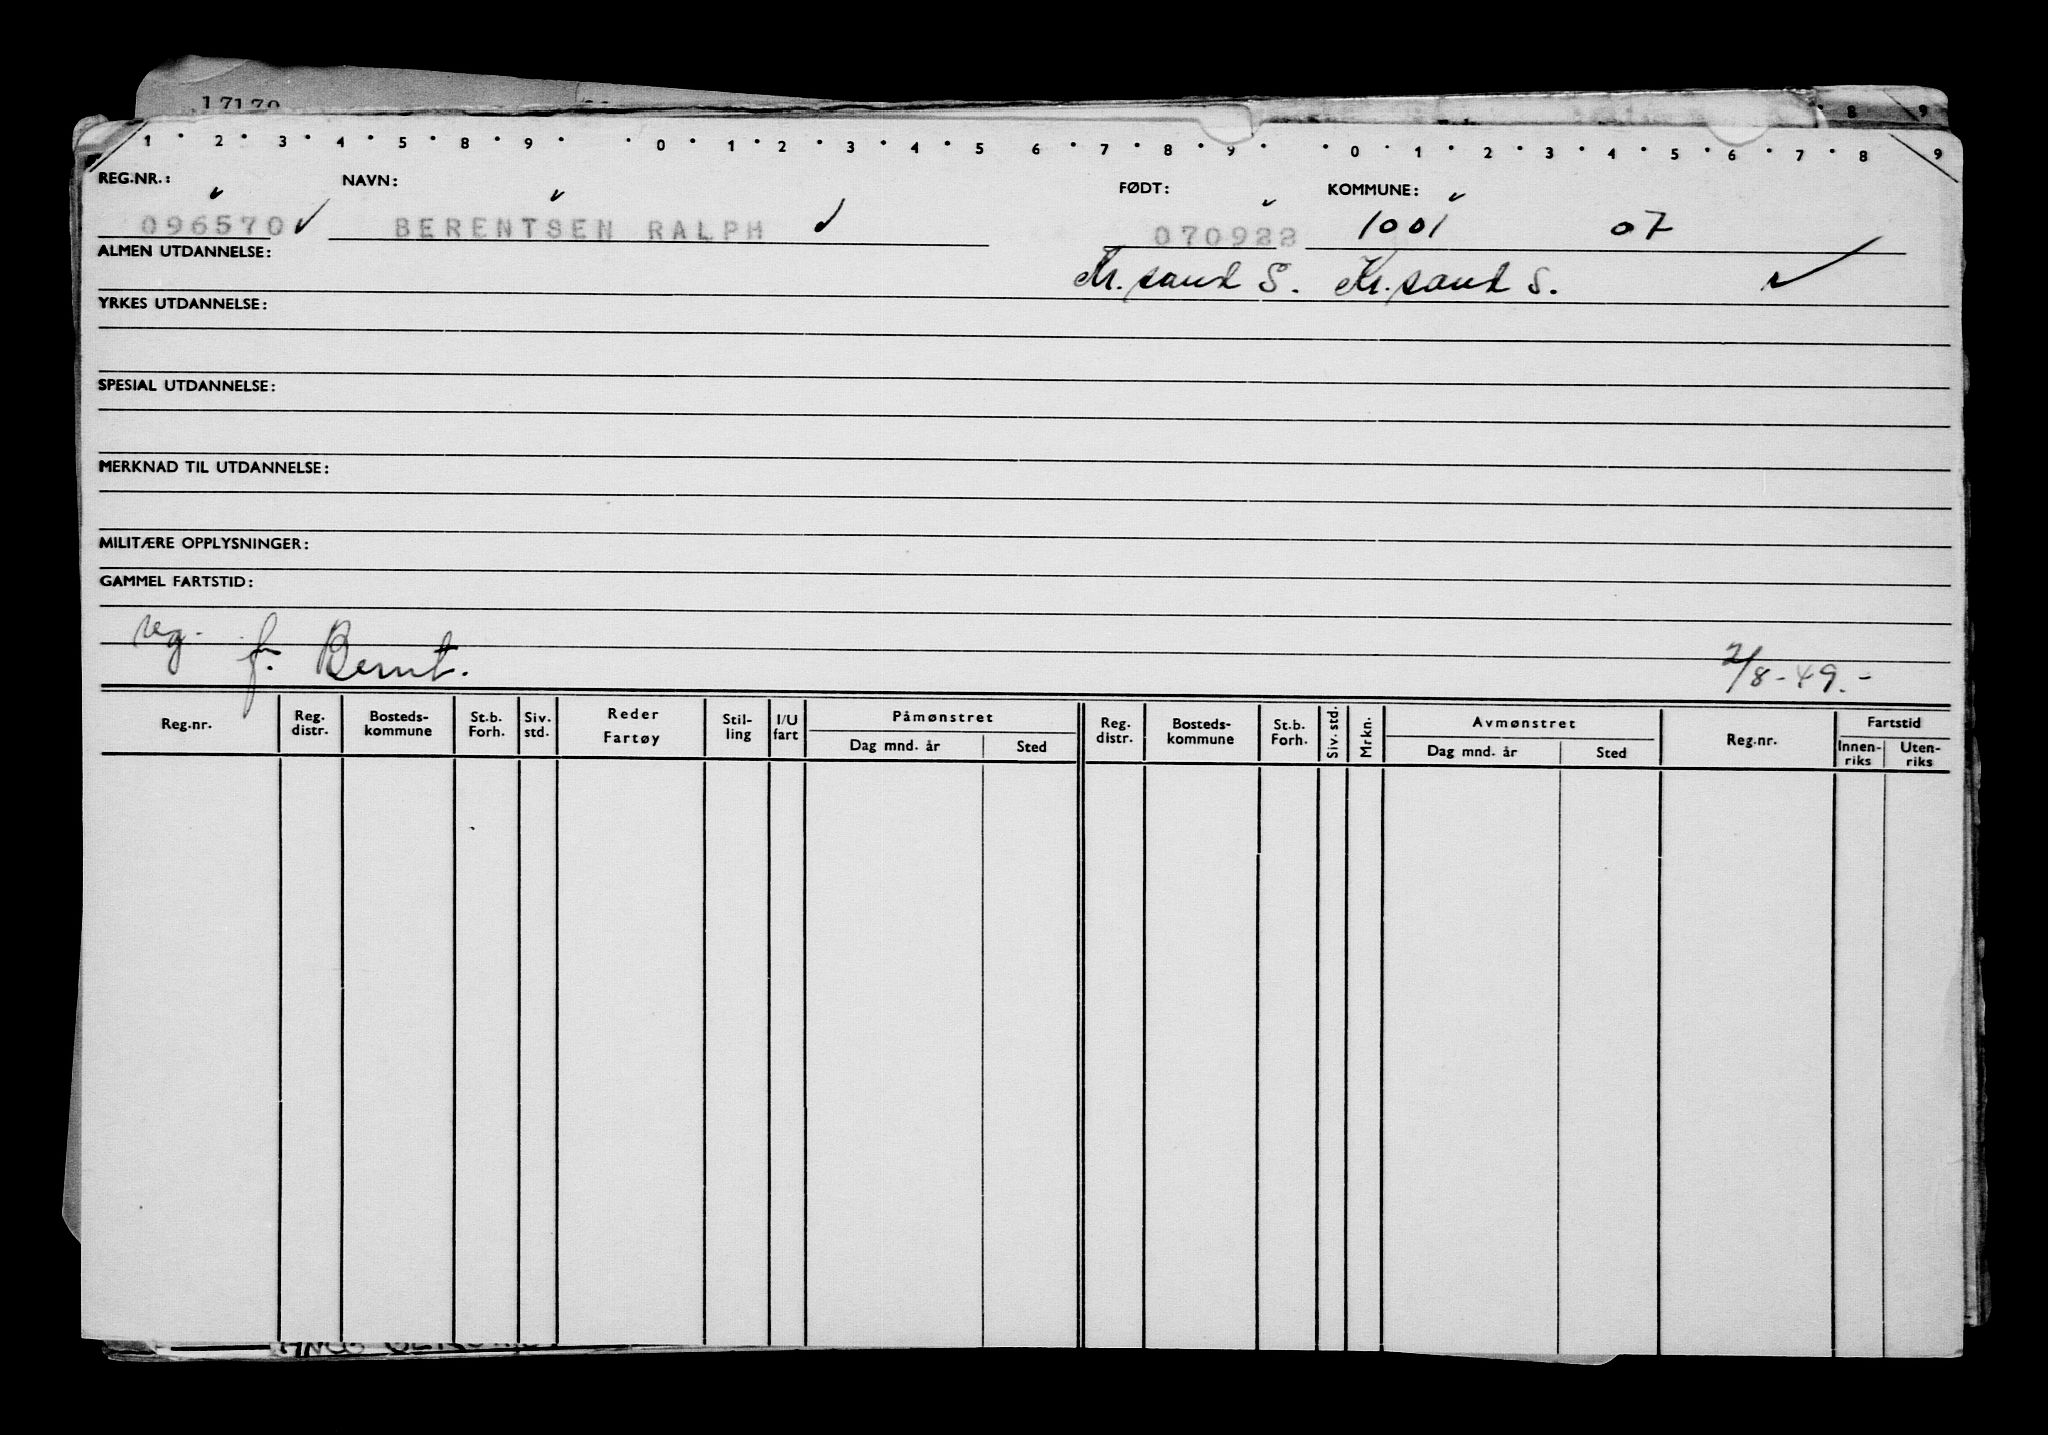 17170
8 9
1 2 3 4 5 8 9 0 1 2 3 4 5 6 7 8 9 0 1 2 3 4 5 6 7 8 9
REG.NR.: NAVN: FØDT: KOMMUNE:
096570 BERENTSEN RALPH 070922 1001 07
ALMEN UTDANNELSE: Kr.sand S. Kr.sand S.
YRKES UTDANNELSE:
SPESIAL UTDANNELSE:
MERKNAD TIL UTDANNELSE:
MILITÆRE OPPLYSNINGER:
GAMMEL FARTSTID:
reg. f. Bernt. 2/8-49.-
Reg.nr. Reg. distr. Bosteds-kommune St.b. Forh. Siv. std. Reder Fartøy Stil-ling I/U fart Påmønstret Dag mnd. år Sted Reg. distr. Bosteds-kommune St.b. Forh. Siv. std. Mrkn. Avmønstret Dag mnd. år Sted Reg.nr. Fartstid Innen-riks Uten-riks